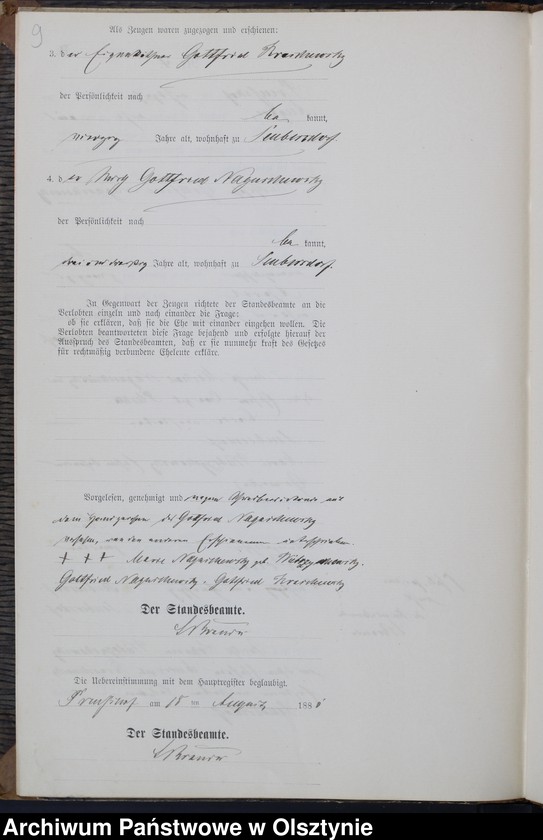 9
Als Zeugen waren zugezogen und erschienen:
3. der Eigenkäthner Gottfried
der Persönlichkeit nach
be kannt,
vierzig Jahre alt, wohnhaft zu Seubersdorf.
4. der Wirth Gottfried Nagurschewsky
der Persönlichkeit nach
be kannt,
drei und dreißig Jahre alt, wohnhaft zu Seubersdorf.
In Gegenwart der Zeugen richtete der Standesbeamte an die
Verlobten einzeln und nach einander die Frage:
ob sie erklären, daß sie die Ehe mit einander eingehen wollen. Die
Verlobten beantworteten diese Frage bejahend und erfolgte hierauf der
Ausspruch des Standesbeamten, daß er sie nunmehr kraft des Gesetzes
für rechtmäßig verbundene Eheleute erkläre.
Vorgelesen, genehmigt und wegen mit
dem Handzeichen des Gottfried Nagurschewsky
versehen, von den anderen Erschienenen unterschrieben
+ + + Marie Nagurschewsky geb.
Gottfried Nagurschewsky. Gottfried
Der Standesbeamte.
Die Uebereinstimmung mit dem Hauptregister beglaubigt.
am 18 ten August 188
Der Standesbeamte.
Archiwum Państwowe w Olsztynie